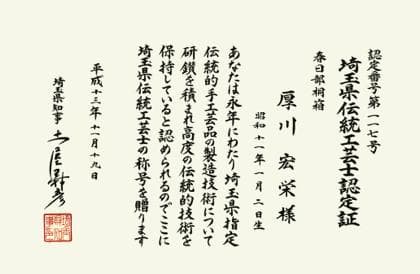 認定番号第一一七号
埼玉県伝統工芸士認定証
春日部桐箱
厚川宏栄様
昭和十一年一月二日生
あなたは永年にわたり埼玉県指定
伝統的手工芸品の製造技術について
研鑽を積まれ高度の伝統的技術を
保持していると認められるのでここに
埼玉県伝統工芸士の称号を贈ります
平成十三年十一月十九日
埼玉県知事 土屋義彦